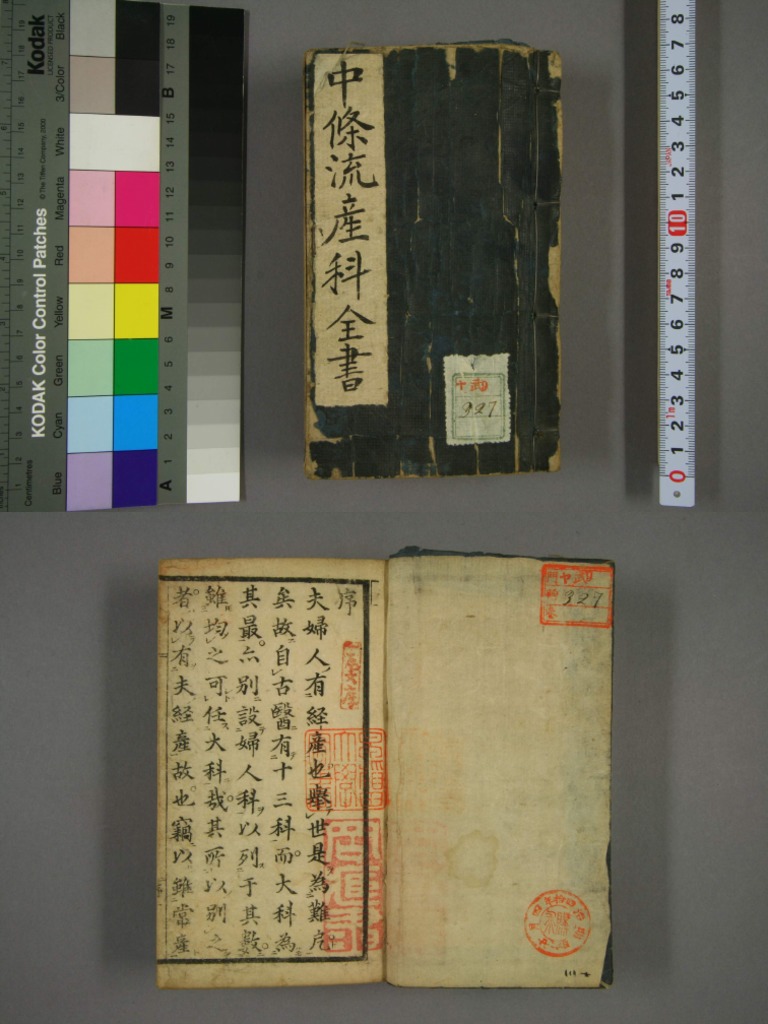 Kodak
LICENSED PRODUCT
KODAK Color Control Patches
© The Tiffen Company, 2000
Centimetres
Blue
Cyan
Green
Yellow
Red
Magenta
White
3/Color
Black
A 1 2 3 4 5 6 M 8 9 10 11 12 13 14 15 B 17 18 19
中條流産科全書
327
0 1 2 3 4 5 6 7 8 9 10 1 2 3 4 5 6 7 8
序
夫婦人有経産也舉世是為難危
矣故自古醫有十三科而大科為
其最亦別設婦人科以列于其數
雖均之可任大科哉其所以別之
者以有夫経産故也竊以雖常産
327